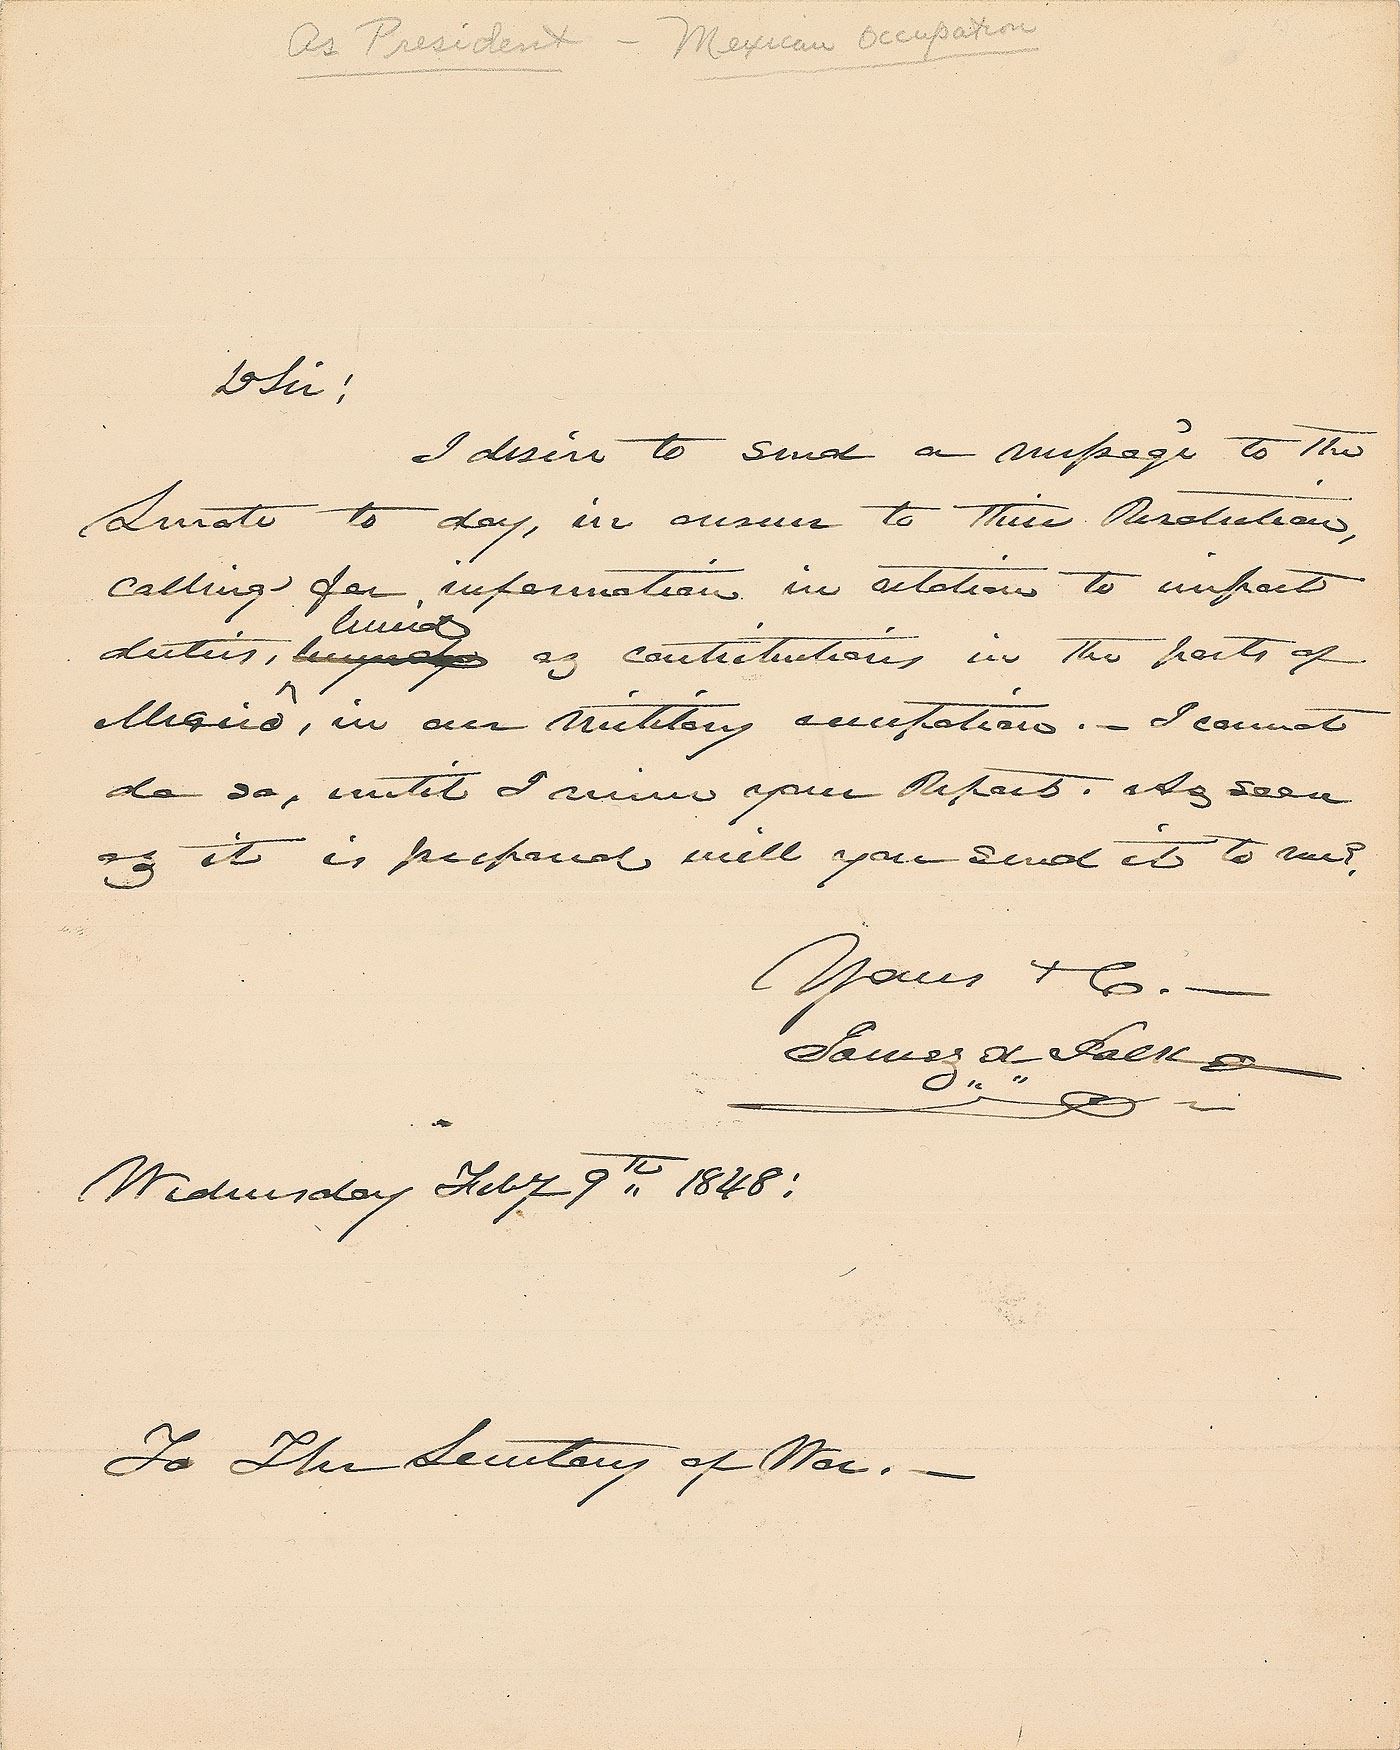 As President - Mexican Occupation
D Sir;
I desire to send a message to the
Senate to day, in answer to their Resolution,
calling for information in relation to import
levied
duties, as contributions in the ports of
Mexico, in our military occupation. — I cannot
do so, until I receive your Report. As soon
as it is prepared will you send it to me?
Yours &c. —
James K. Polk
Wednesday Feby 9th 1848:
To The Secretary of War. —